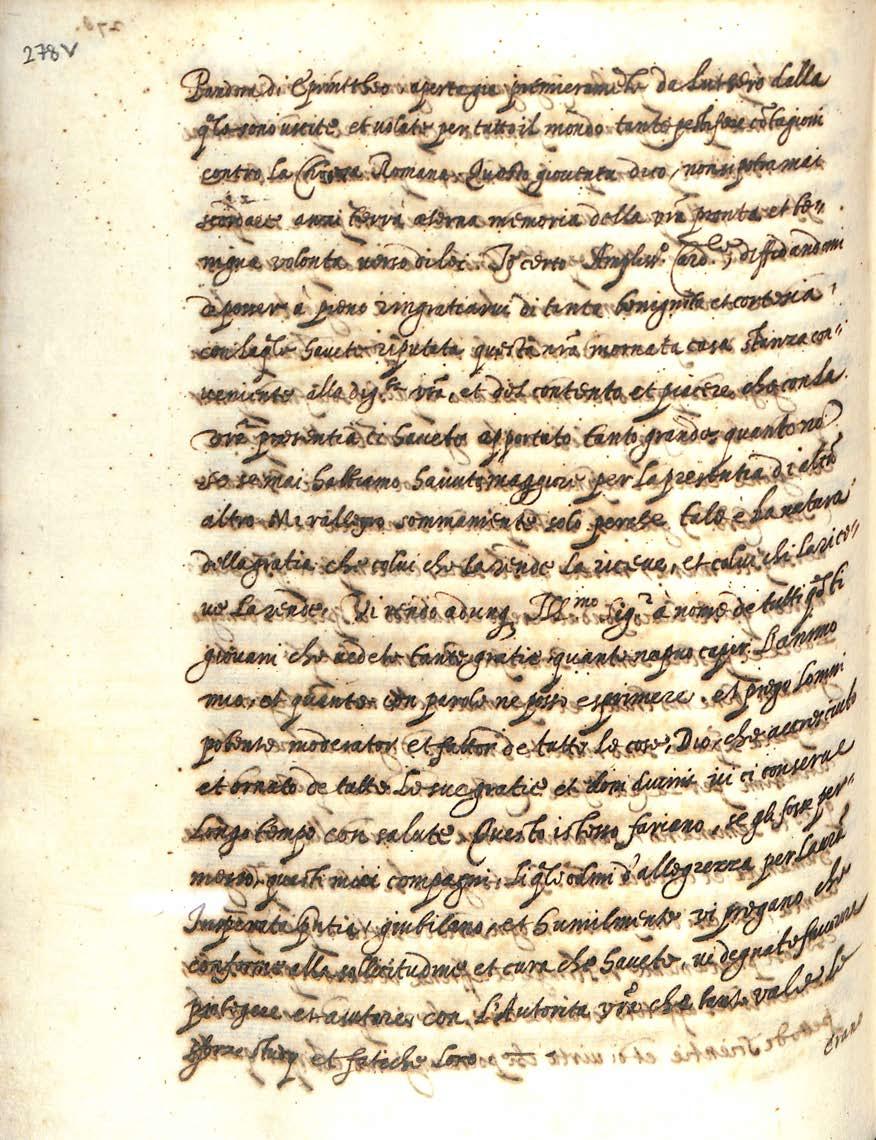 278v
Pandora di Epimtheo aperta gia primieramẽte da Luttero dalla
q̃le sono uscite, et uolate per tutto il mondo tante pestifere cõtagioni
contro la Chiesa Romana. Questa giouentu dico, non si potra mai
scordare anzi terrà æterna memoria della vrã pronta et be-
nigna volonta uerso di lei. Io certo Ampliss.º Card.le, diffidandomi
de poner à pieno ringratiarui di tanta benignità et cortesia,
con la q̃le hauete riputata questa nrã inornata casa stanza con-
ueniente alla dig.tà vrã, et del contento et piacere che con la
vrã presentia ci hauete apportato tanto grande, quanto nõ
so se mai habbiamo hauuto maggiore per la presentia di alcũ
altro Mi rallegro sommamente solo perche tale è la natura
della gratia che colui che la rende la riceue, et colui chi la rice-
ue la rende. Vi rendo adunq, Ill.mo Sig.r à nome de tutti q̃sti
giouani che uedete tante gratie quante capir l'animo
mio, et quante con parole ne posso esprimere. et prego l'omni
potente moderator et fattor de tutte le cose, Dio, che accresciuto
et ornato de tutte le sue gratie et doni diuini ui ci conserue
longo tempo con salute. Questo istesso fariano, se gli fosse per-
messo, questi miei compagni, li q̃li d'allegrezza per la vrã
insperata pñtia giubilano, et humilmente vi pregano che
conforme alla sollicitudine et cura che hauete, ui degnate fauorire
protegere et aiutare con l'Autorita vrã che tanto vale le
sforze studij et fatiche loro
erano